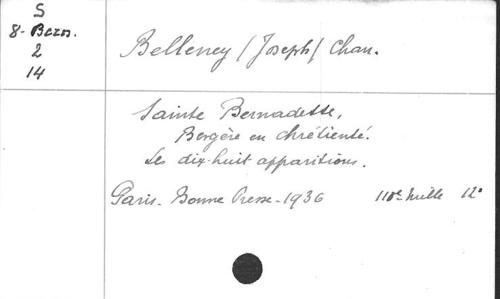 S
8-Bern.
2
14
Belleney /Joseph/ Chan.
Sainte Bernadette,
Bergère en chrétienté.
Les dix-huit apparitions.
Paris. Bonne Presse - 1936 110e mille 12°